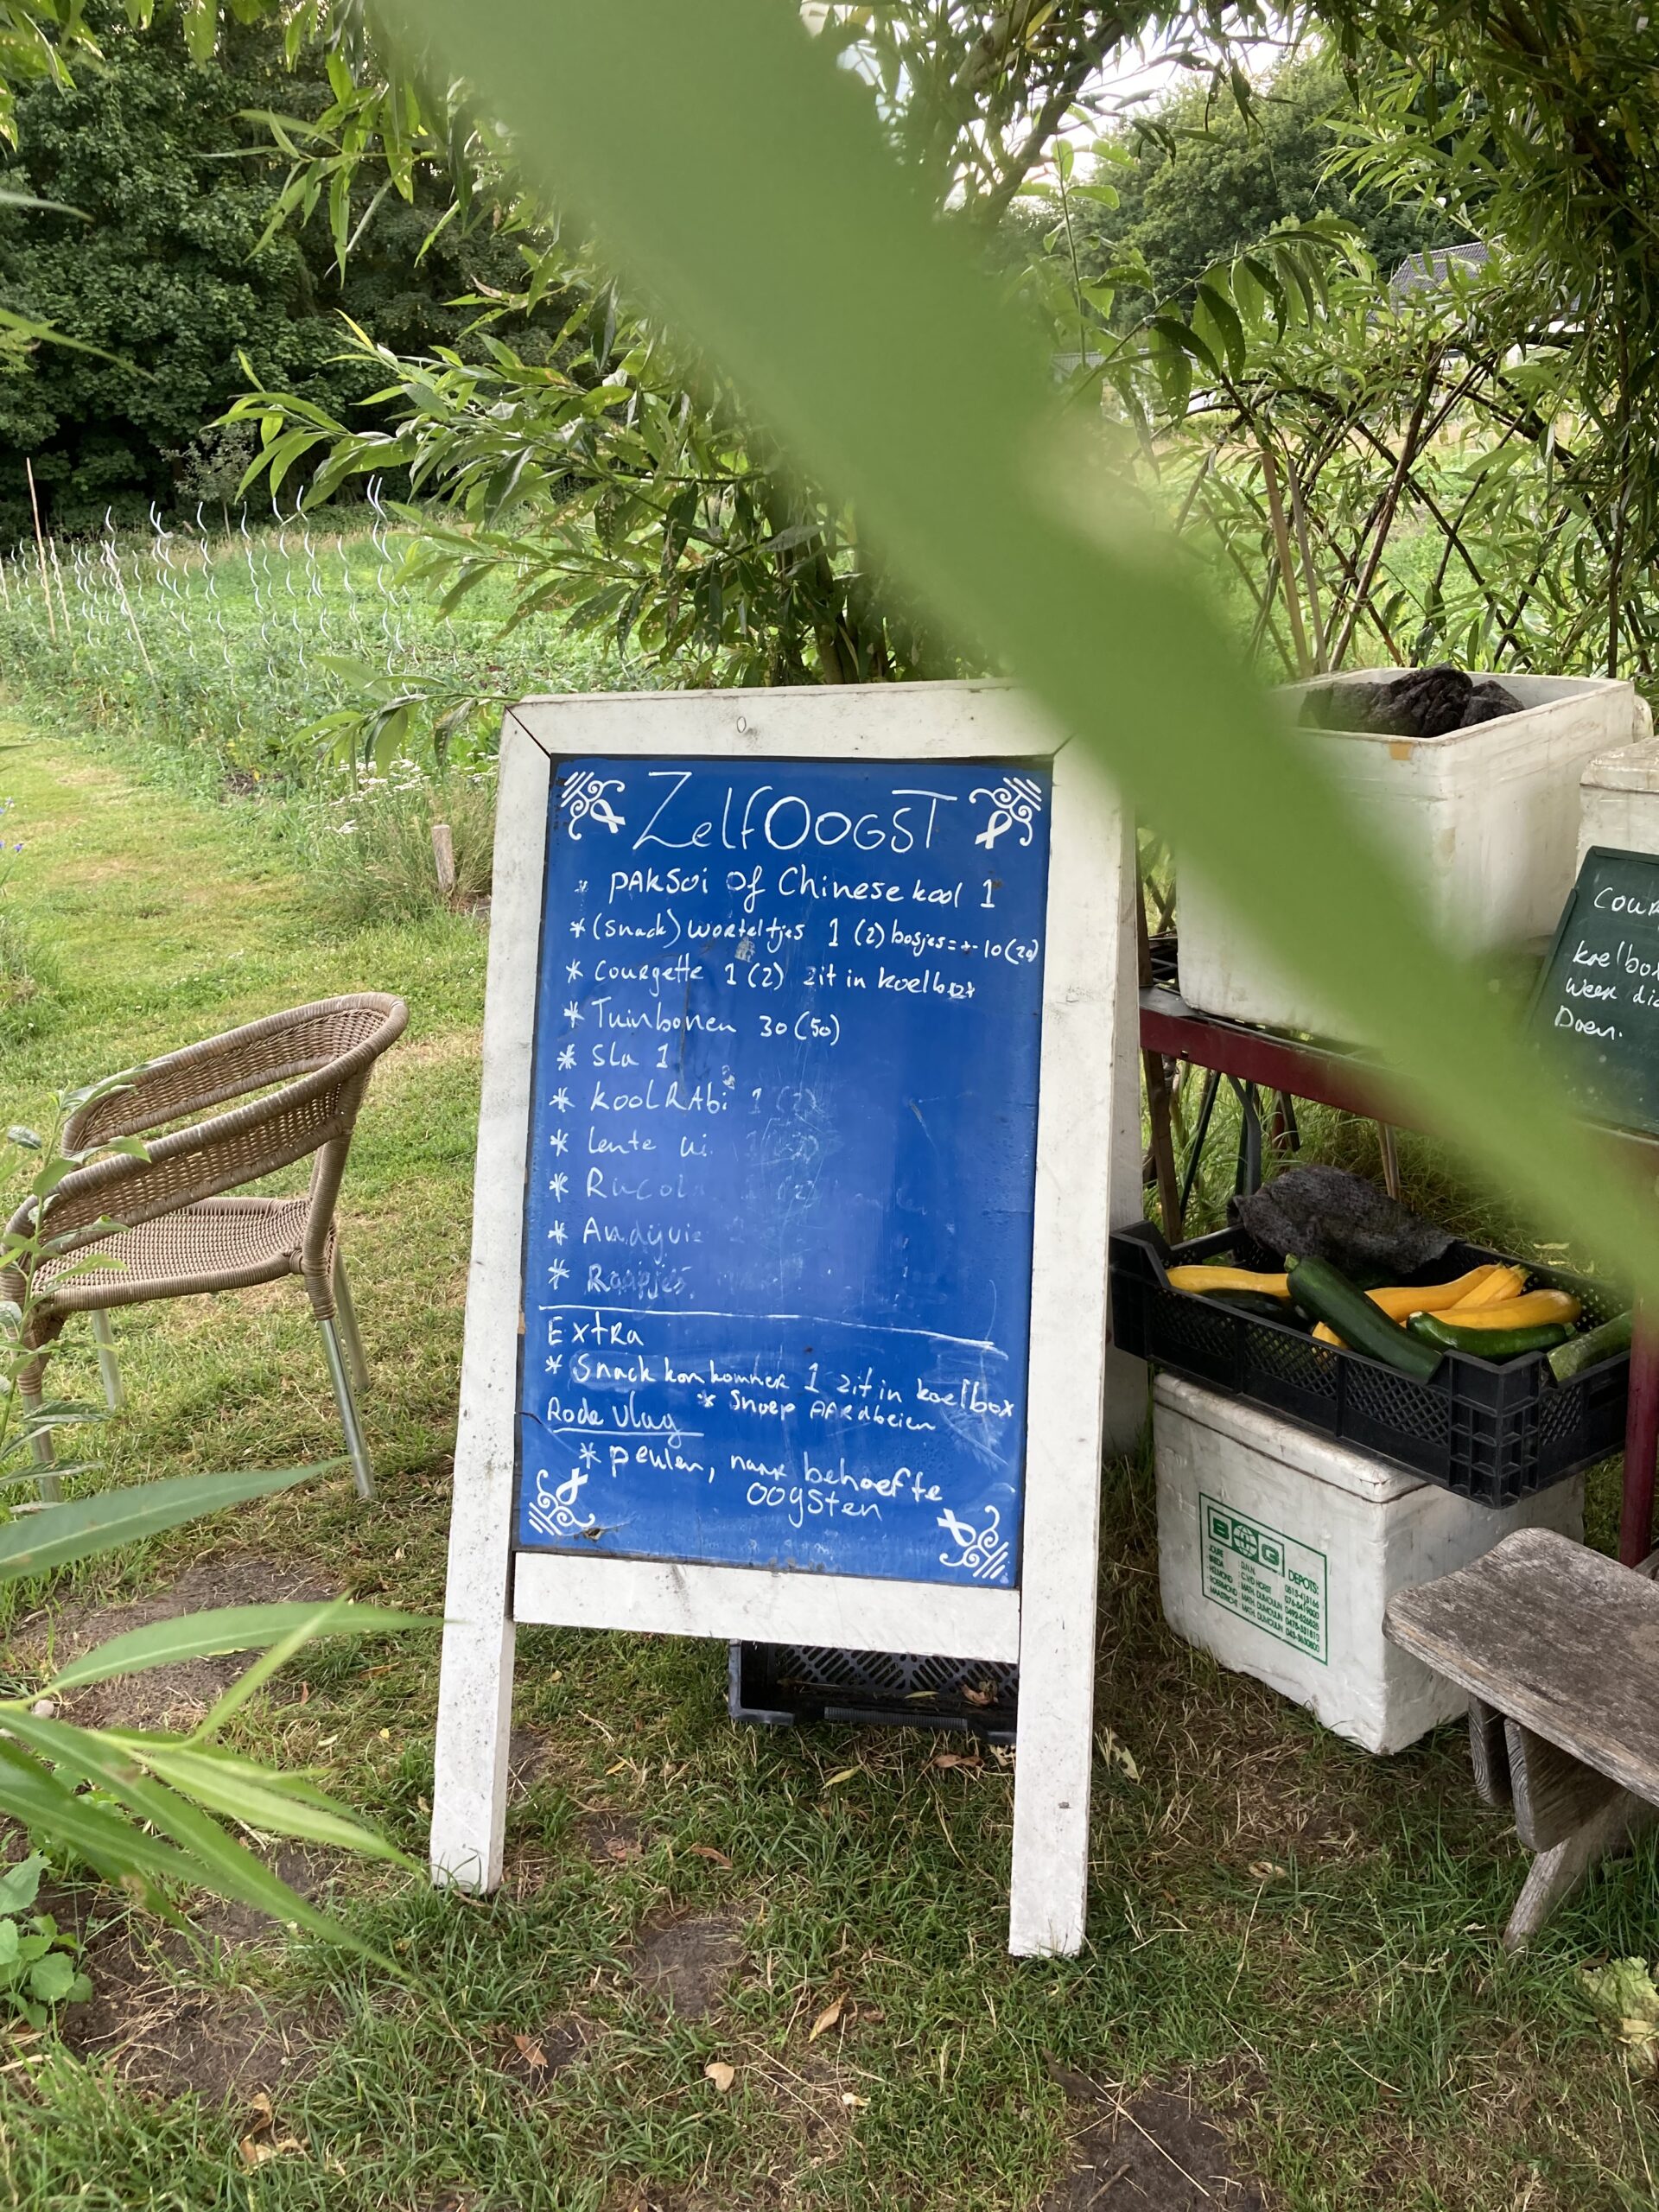 ZelfOOGST
* PAKSoi of Chinese kool 1
* (Snack) worteltjes 1 (2) bosjes = +- 10 (20)
* Courgette 1 (2) zit in koelbox
* Tuinbonen 30 (50)
* Sla 1
* koolRAbi 1 (2)
* lente ui
* Rucol
* Andijvie
* Raapjes
Extra
* Snack komkommer 1 zit in koelbox
* Snoep AARdbeien
Rode vlag
* peulen, naar behoefte
oogsten
Cour
koelbox
week di
Doen.
BOG
DEPOTS: